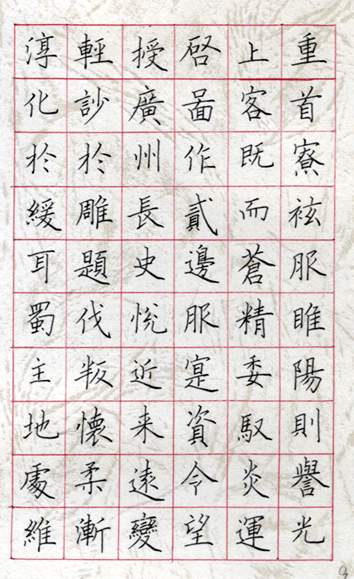 重首寮袨服睢陽則譽光
上客既而蒼精委馭炎運
啓啚作貳邊服寔資令望
授廣州長史悅近来遠變
輕訬於雕題伐叛懷柔漸
淳化於緩耳蜀主地處維